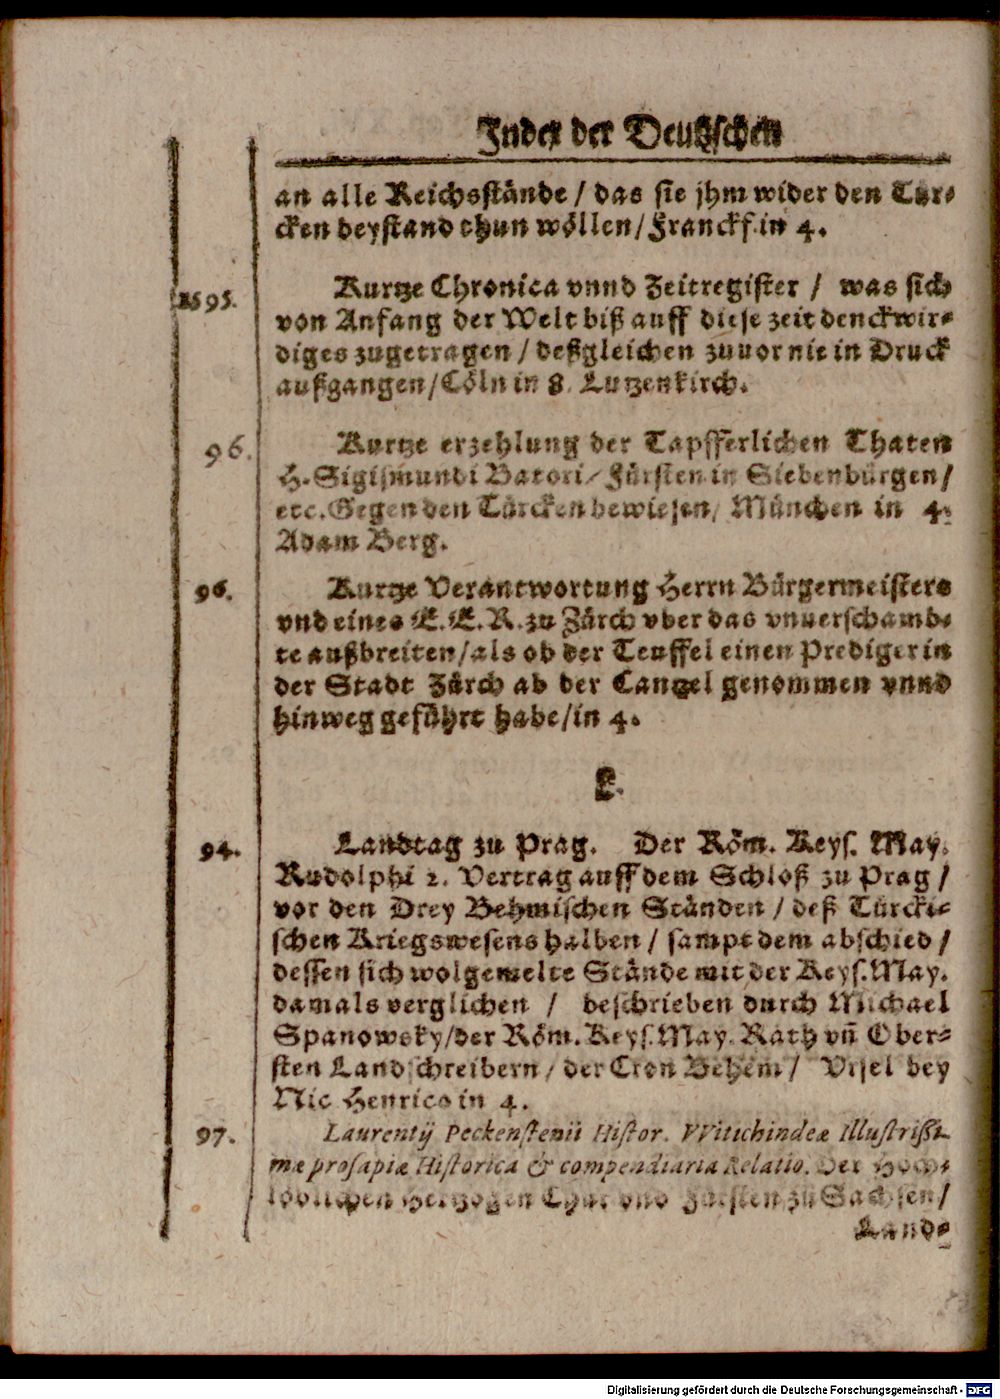 Index der Deutschen
an alle Reichsstände / das sie jhm wider den Tür-
cken beystand thun wöllen / Franckf. in 4.
1595. Kurtze Chronica vnnd Zeitregister / was sich
von Anfang der Welt biß auff diese zeit denckwir-
diges zugetragen / deßgleichen zuuor nie in Druck
außgangen / Cöln in 8. Lutzenkirch.
96. Kurtze erzehlung der Tapfferlichen Thaten
H. Sigismundi Batori / Fürsten in Siebenbürgen /
etc. Gegen den Türcken bewiesen / München in 4.
Adam Berg.
96. Kurtze Verantwortung Herrn Bürgermeisters
vnd eines E. E. R. zu Zürch vber das vnuerschamb-
te außbreiten / als ob der Teuffel einen Prediger in
der Stadt Zürch ab der Cantzel genommen vnnd
hinweg geführt habe / in 4.
L.
94. Landtag zu Prag. Der Röm. Keys. May.
Rudolphi 2. Vertrag auff dem Schloß zu Prag /
vor den Drey Behmischen Ständen / deß Türcki-
schen Kriegswesens halben / sampt dem abschied /
dessen sich wolgemelte Stände mit der Keys. May.
damals verglichen / beschrieben durch Michael
Spanowsky / der Röm. Keys. May. Rath vñ Ober-
sten Landschreibern / der Cron Behem / Vrsel bey
Nic Henrico in 4.
97. Laurentij Peckenstenii Histor. VVitichindeæ Illustrißi-
mæ prosapiæ Historica & compendiaria Relatio. Der Hoch-
löblichen Hertzogen Chur vnd Fürsten zu Sachsen /
Land-
Digitalisierung gefördert durch die Deutsche Forschungsgemeinschaft - DFG